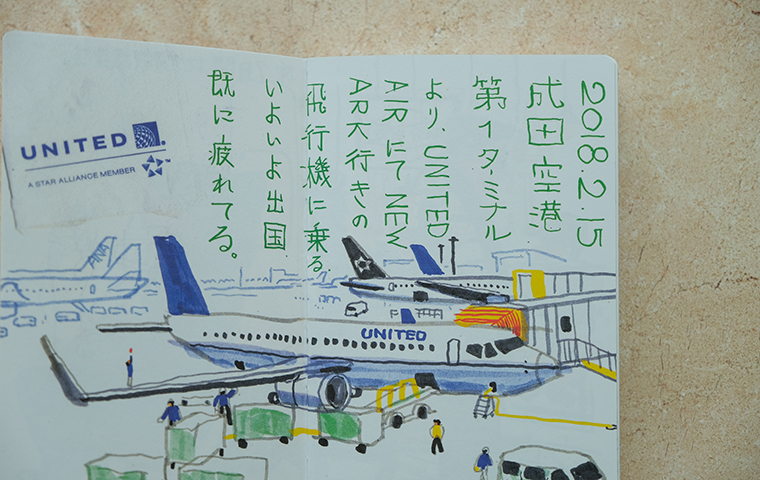 2018.2.15
成田空港
第1ターミナル
より、UNITED
AIR にて NEW
ARK 行きの
飛行機に乗る
いよいよ出国
既に疲れてる。
UNITED
A STAR ALLIANCE MEMBER
ANA
UNITED